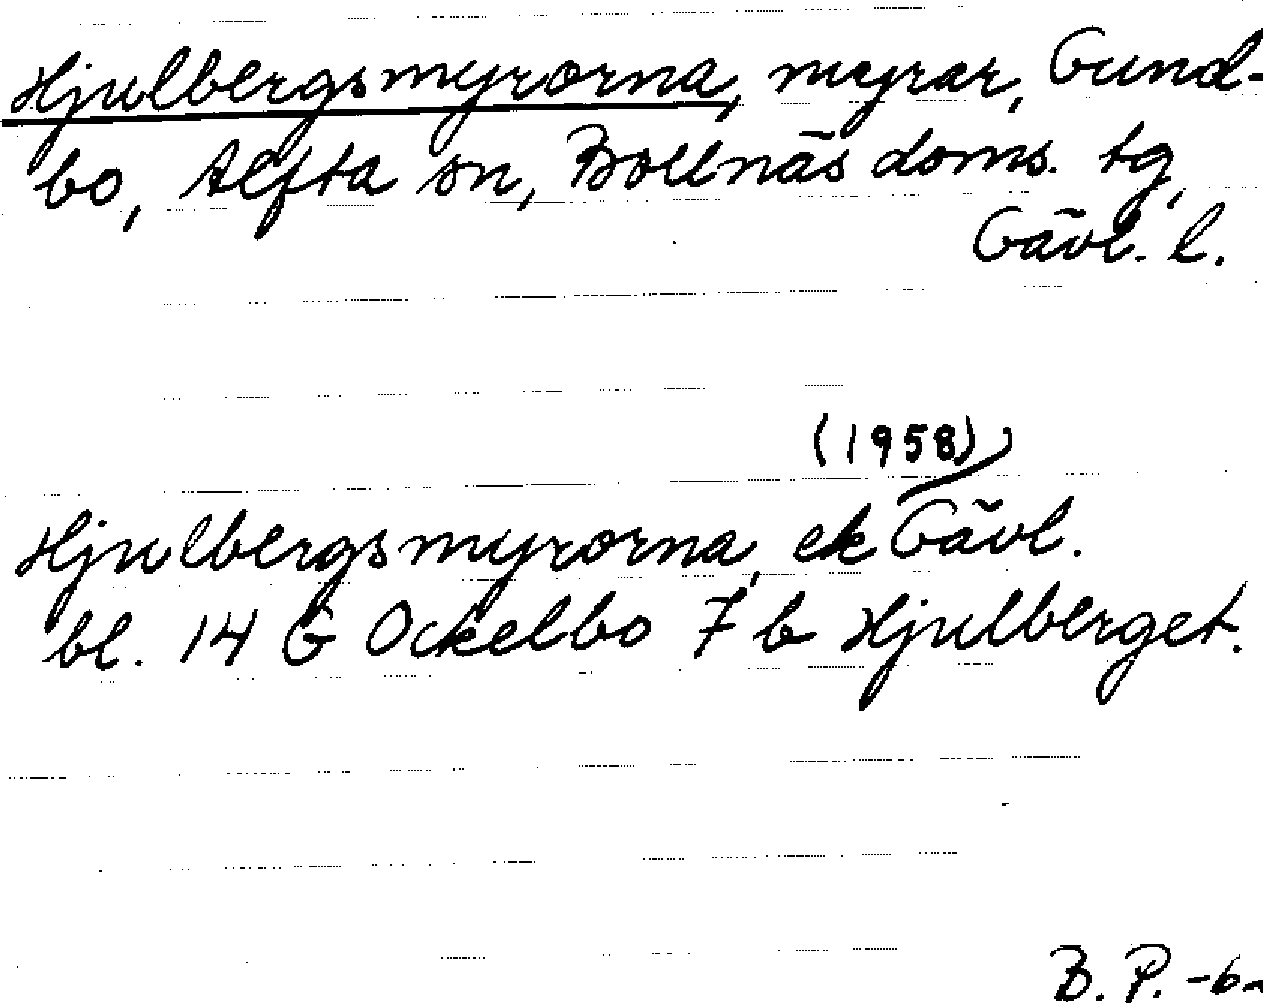 Hjulbergsmyrorna, myrar, Gund-
bo, Alfta sn, Bollnäs doms. tg,
Gävl. l.
(1958)
Hjulbergsmyrorna, ek Gävl.
bl. 14 G Ockelbo 7 b Hjulberget.
B. P. -6-